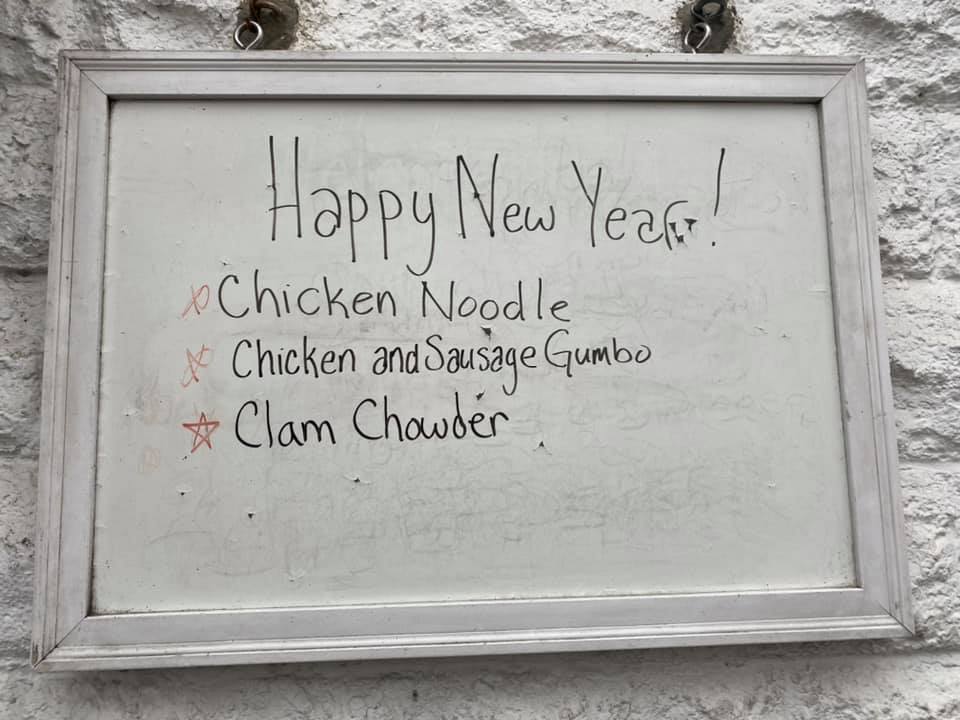 Happy New Year!
Chicken Noodle
Chicken and Sausage Gumbo
Clam Chowder